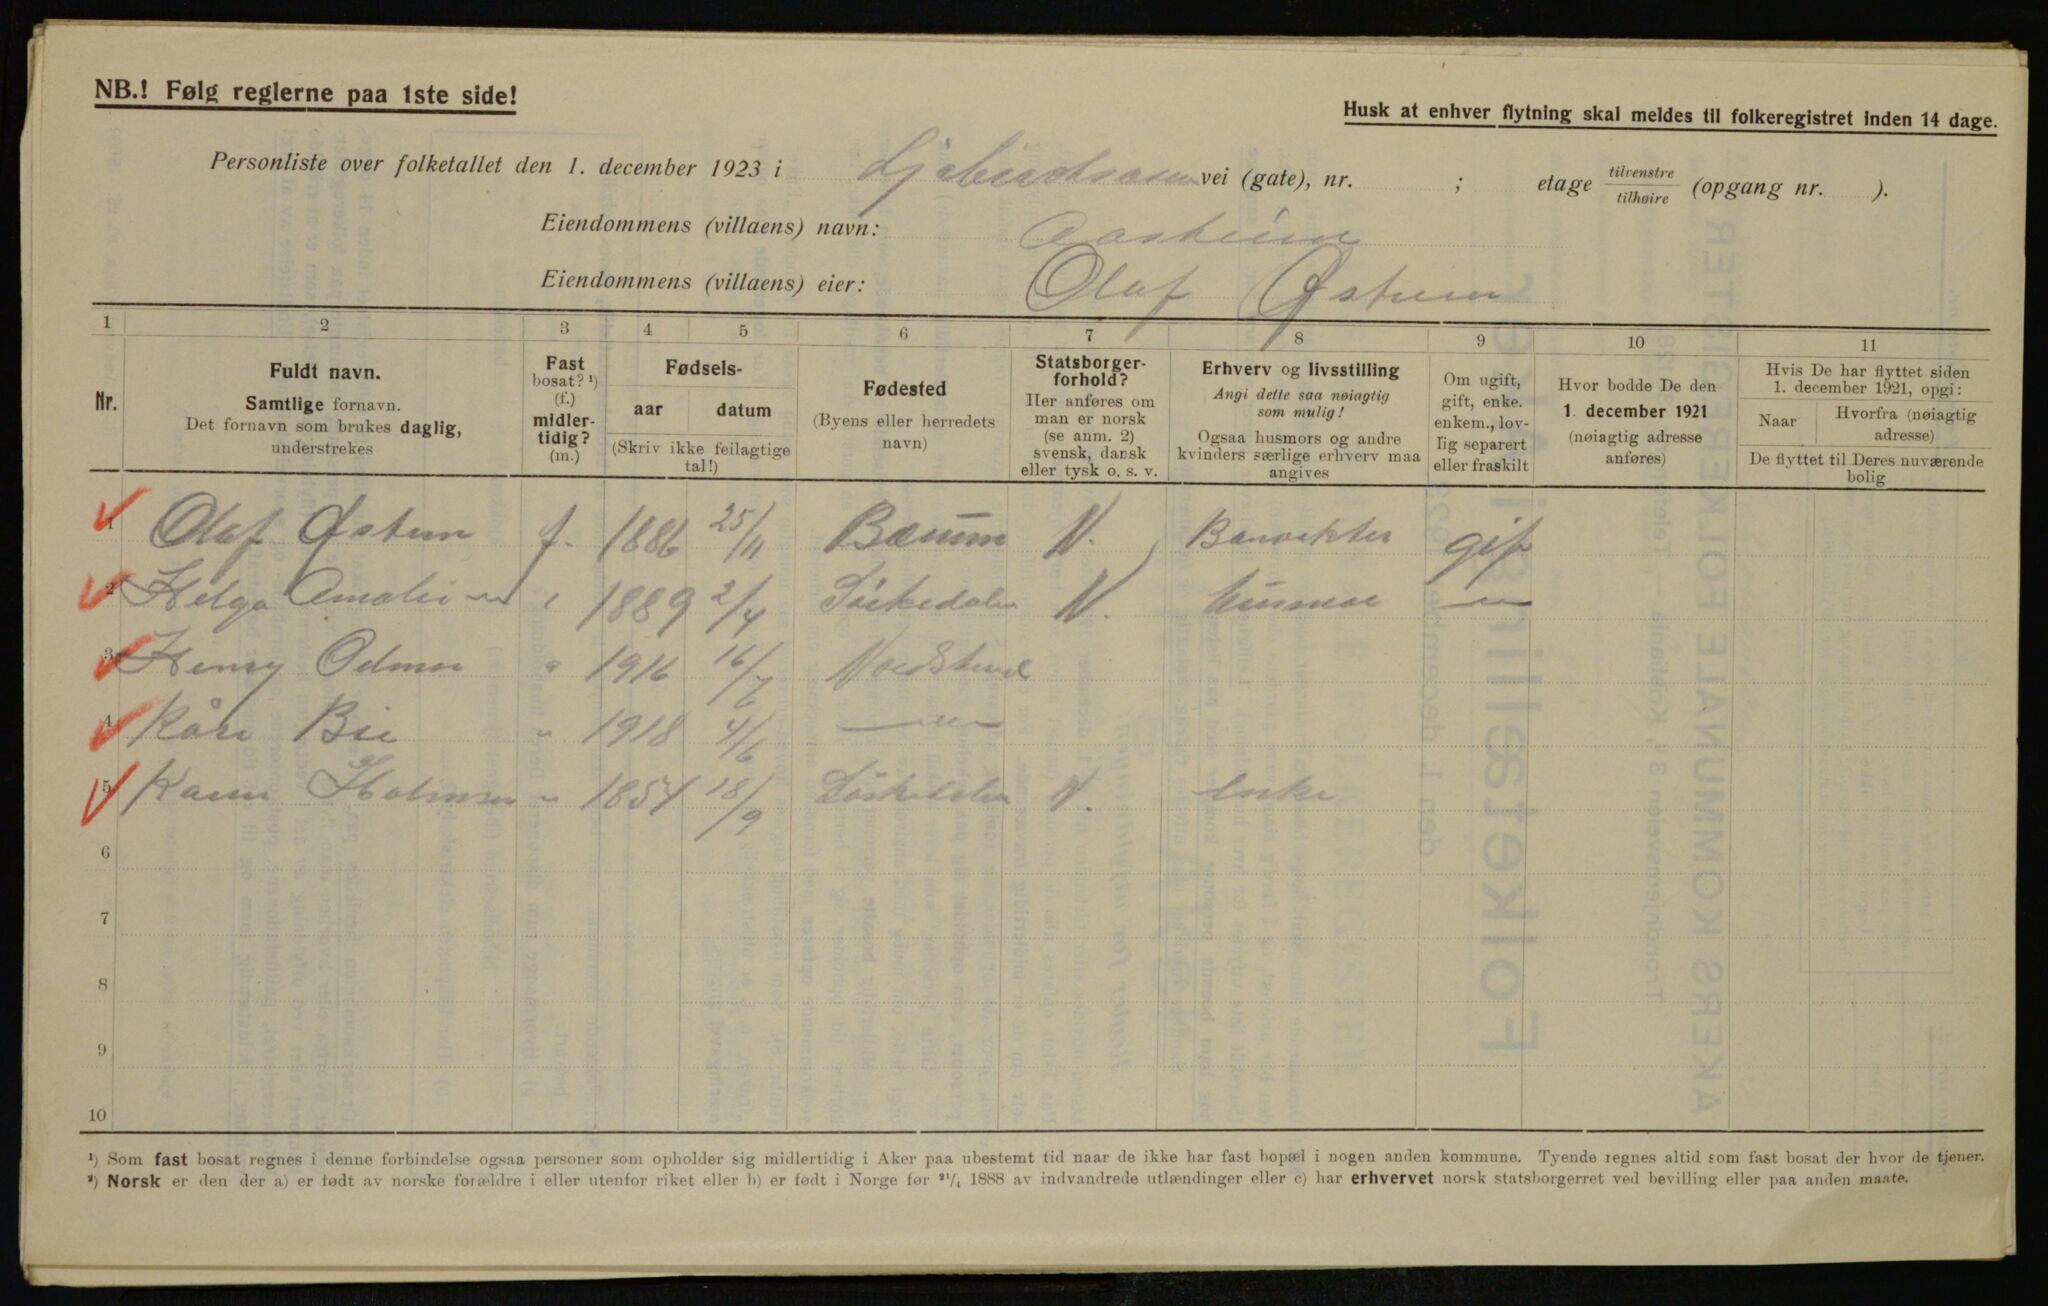 NB.! Følg reglerne paa 1ste side!
Husk at enhver flytning skal meldes til folkeregistret inden 14 dage.
Personliste over folketallet den 1. december 1923 i vei (gate), nr. ; etage tilvenstre/tilhøire (opgang nr. ).
Eiendommens (villaens) navn: Aasheim
Eiendommens (villaens) eier: Olaf Østern
1 2 3 4 5 6 7 8 9 10 11
Nr.
Fuldt navn.
Samtlige fornavn.
Det fornavn som brukes daglig,
understrekes
Fast
bosat? ¹)
(f.)
midler-
tidig?
(m.)
Fødsels-
aar datum
(Skriv ikke feilagtige
tal!)
Fødested
(Byens eller herredets
navn)
Statsborger-
forhold?
Her anføres om
man er norsk
(se anm. 2)
svensk, dansk
eller tysk o. s. v.
Erhverv og livsstilling
Angi dette saa nøiagtig
som mulig!
Ogsaa husmors og andre
kvinders særlige erhverv maa
angives
Om ugift,
gift, enke.
enkem., lov-
lig separert
eller fraskilt
Hvor bodde De den
1. december 1921
(nøiagtig adresse
anføres)
Hvis De har flyttet siden
1. december 1921, opgi:
Naar Hvorfra (nøiagtig
adresse)
De flyttet til Deres nuværende
bolig
1 Olaf Østern f. 1886 25/11 Bærum N. gift
2 Helga Amalie — „ — „ 1889 2/4 Sørkedalen N. Husmor — „ —
3 Henry Odmar „ 1916 16/7 Nordstrand
4 Kåre Bie „ 1918 4/6 — „ —
5 Karen Holmsen „ 1854 18/9 Sørkedalen N. Enke
6
7
8
9
10
¹) Som fast bosat regnes i denne forbindelse ogsaa personer som opholder sig midlertidig i Aker paa ubestemt tid naar de ikke har fast bopæl i nogen anden kommune. Tyende regnes altid som fast bosat der hvor de tjener.
²) Norsk er den der a) er født av norske forældre i eller utenfor riket eller b) er født i Norge før 21/4 1888 av indvandrede utlændinger eller c) har erhvervet norsk statsborgerret ved bevilling eller paa anden maate.